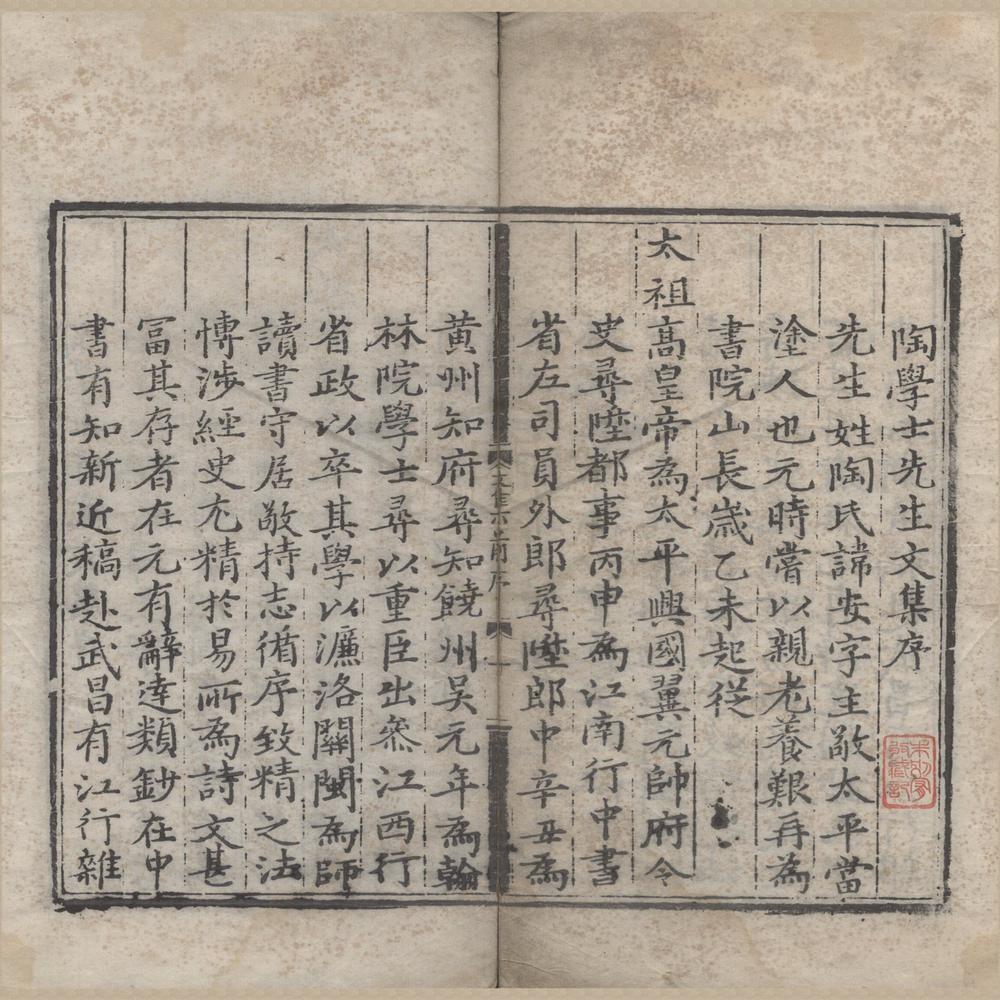 陶學士先生文集序
先生姓陶氏諱安字主敬太平當
塗人也元時嘗以親老養艱再為
書院山長歲乙未起從
太祖高皇帝為太平興國翼元帥府令
史尋陞都事丙申為江南行中書
省左司員外郎尋陞郎中辛丑為
黃州知府尋知饒州吳元年為翰
林院學士尋以重臣出叅江西行
省政以卒其學以濂洛關閩為師
讀書守居敬持志循序致精之法
愽涉經史尤精於易所為詩文甚
冨其存者在元有辭達類鈔在中
書有知新近稿赴武昌有江行雜